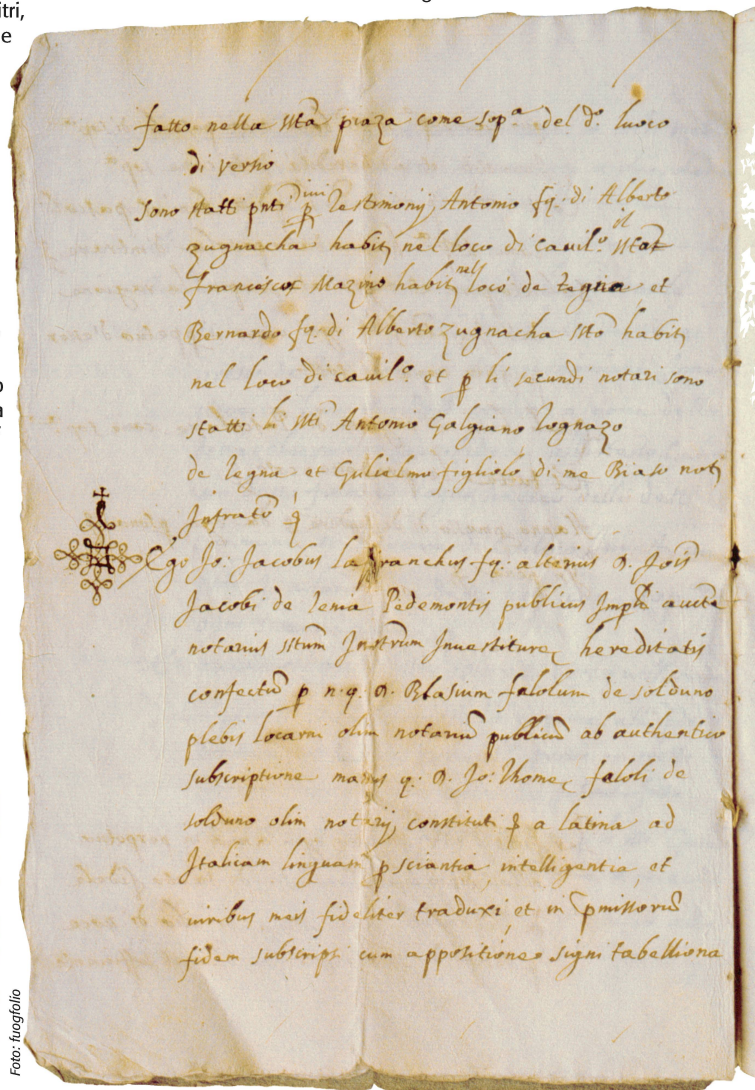 itri,
e
fatto nella sta piaza come sopa del do luoco
di versio
sono statti pnti divi p Testimonij Antonio fq: di Alberto
zugnacha habit nel loco di cavilo il
francisco Mazino habit nell loco de tegna et
Bernardo fq: di Alberto zugnacha sto habit
nel loco di cavilo et p li secundi notari sono
statti li sti Antonio Galgiano Zognazo
de Tegna et Gulielmo figliolo di me Biaso not
Infrato
Ego Jo: Jacobus lafranchus fq: alterius D. Jois
Jacobi de Pedemontis publicus Imple aucte
notarius stum Instrum Investiture hereditatis
confectu p n. q. D. Blasium falolum de solduno
plebis locarni olim notariu publicu ab authentico
subscriptione manus q: D. Jo: Thome faloli de
solduno olim notarij constituti a latina ad
Italicam linguam p sciantia intelligentia et
viribus meis fideliter traduxi et in pmissoru
fidem subscripsi cum appositione signi tabelliona
Foto: fuogfolio